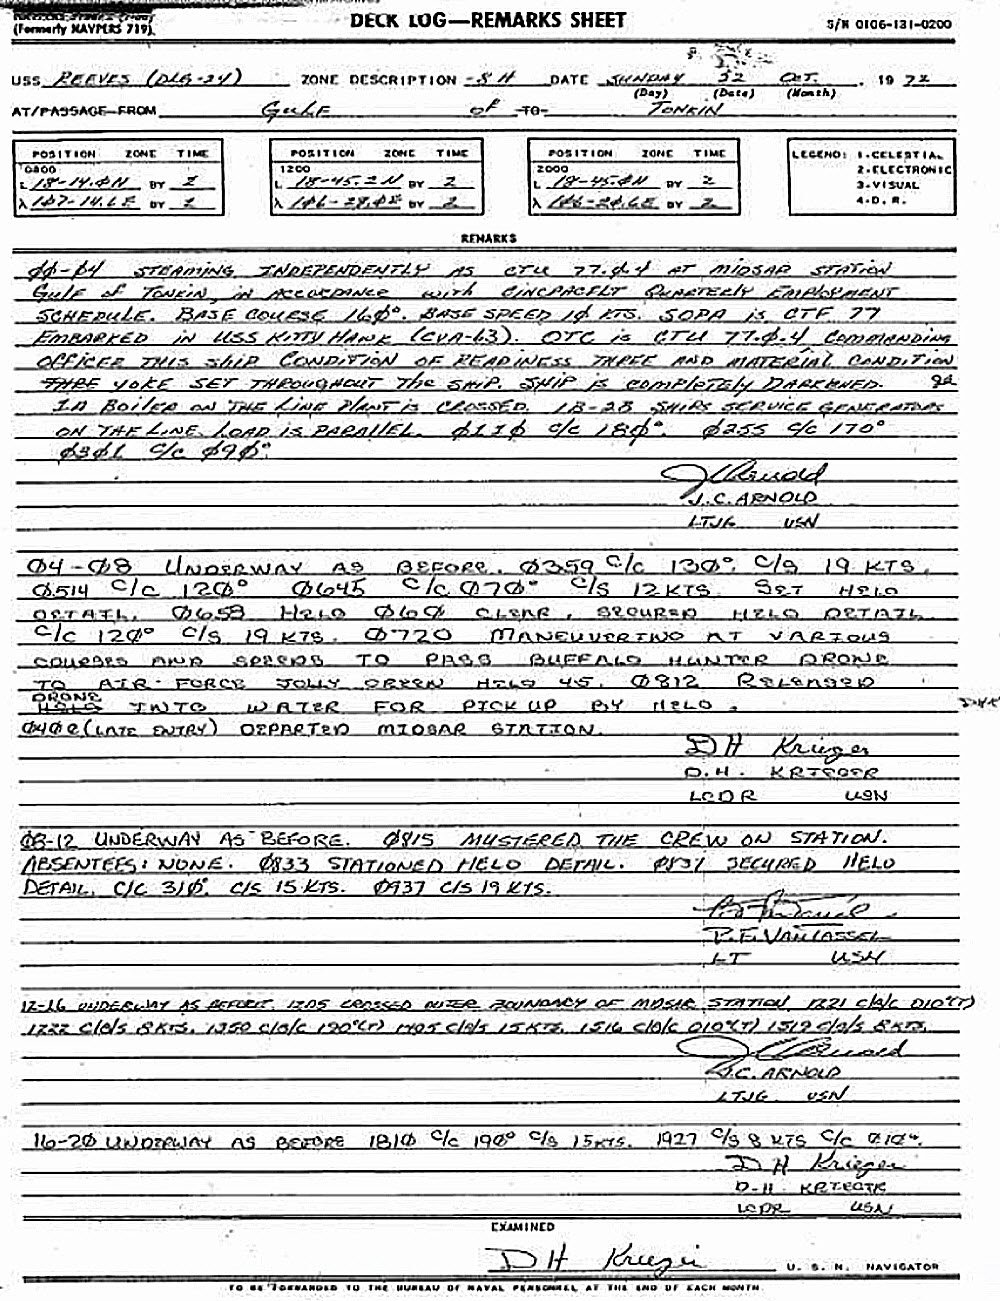 (Formerly NAVPERS 719)
DECK LOG—REMARKS SHEET
S/N 0106-131-0200
USS REEVES (DLG-24) ZONE DESCRIPTION -8 H DATE SUNDAY OCT. 1972
(Day) (Date) (Month)
AT/PASSAGE FROM GULF OF TO TONKIN
POSITION ZONE TIME POSITION ZONE TIME POSITION ZONE TIME LEGEND: 1-CELESTIAL
0800 1200 2000 2-ELECTRONIC
L 18-14.0N BY 2 L 18-45.2N BY 2 L 18-45.0N BY 2 3-VISUAL
λ 107-14.6E BY 2 λ 106-28.0E BY 2 λ 106-28.6E BY 2 4-D. R.
REMARKS
ØØ-Ø4 STEAMING INDEPENDENTLY AS CTU 77.Ø.4 AT MIDSAR STATION
GULF OF TONKIN, IN ACCORDANCE WITH CINCPACFLT QUARTERLY EMPLOYMENT
SCHEDULE. BASE COURSE 16Ø°. BASE SPEED 1Ø KTS. SOPA IS CTF 77
EMBARKED IN USS KITTY HAWK (CVA-63). OTC IS CTU 77.Ø.4, COMMANDING
OFFICER THIS SHIP. CONDITION OF READINESS THREE AND MATERIAL CONDITION
YOKE SET THROUGHOUT THE SHIP. SHIP IS COMPLETELY DARKENED.
1A BOILER ON THE LINE PLANT IS CROSSED. 1B-2B SHIPS SERVICE GENERATORS
ON THE LINE. LOAD IS PARALLEL. Ø11Ø C/C 18Ø°. Ø255 C/C 17Ø°
Ø3Ø1 C/C Ø9Ø°.
J.C. ARNOLD
LTJG USN
Ø4-Ø8 UNDERWAY AS BEFORE. Ø359 C/C 13Ø°. C/S 19 KTS.
Ø514 C/C 12Ø° Ø645 C/C Ø7Ø° C/S 12 KTS. SET HELO
DETAIL. Ø659 HELO CLEAR, SECURED HELO DETAIL.
C/C 12Ø° C/S 19 KTS. Ø72Ø MANEUVERING AT VARIOUS
COURSES AND SPEEDS TO PASS BUFFALO HUNTER DRONE
TO AIR FORCE JOLLY GREEN HELO 45. Ø812 RELEASED
DRONE
HELO INTO WATER FOR PICK UP BY HELO.
(LATE ENTRY) DEPARTED MIDSAR STATION.
D H Krieger
D.H. KRIEGER
LCDR USN
Ø8-12 UNDERWAY AS BEFORE. Ø815 MUSTERED THE CREW ON STATION.
ABSENTEES: NONE. Ø833 STATIONED HELO DETAIL. Ø837 SECURED HELO
DETAIL. C/C 31Ø°. C/S 15 KTS. Ø937 C/S 19 KTS.
P.F. VANTASSEL
LT USN
12-16 UNDERWAY AS BEFORE. 1205 CROSSED OUTER BOUNDARY OF MDSAR STATION, 1221 C/B/C 010°(T)
1222 C/B/S 8 KTS. 1350 C/B/C 190°(T) 1405 C/B/S 15 KTS. 1516 C/B/C 010°(T) 1519 C/B/S 8 KTS.
J.C. ARNOLD
LTJG USN
16-2Ø UNDERWAY AS BEFORE 181Ø C/C 19Ø° C/S 15 KTS. 1927 C/S 8 KTS C/C Ø1Ø°.
D H Krieger
D.H. KRIEGER
LCDR USN
EXAMINED
D H Krieger U. S. N. NAVIGATOR
TO BE FORWARDED TO THE BUREAU OF NAVAL PERSONNEL AT THE END OF EACH MONTH.